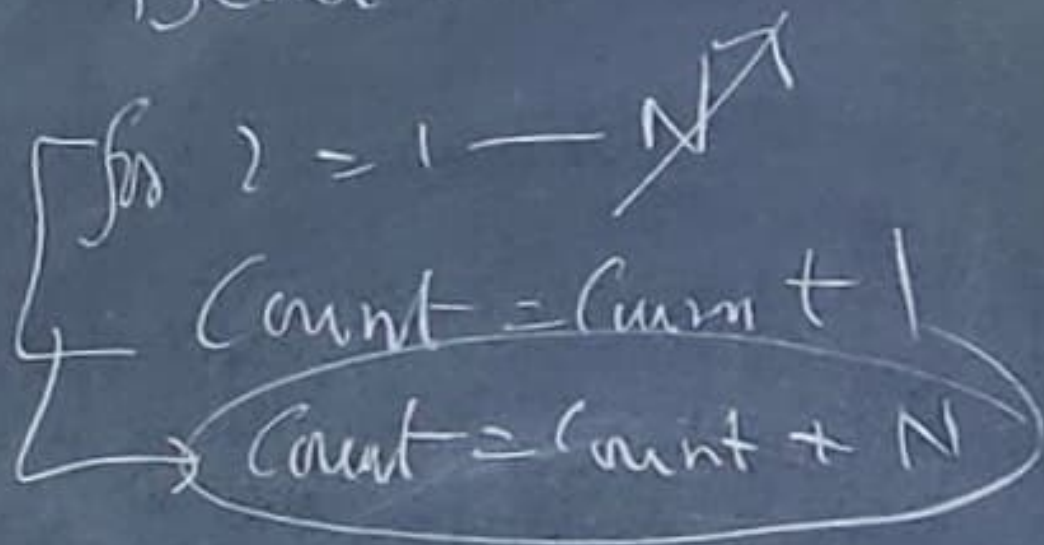 for i = 1 — N
Count = Count + 1
Count = Count + N